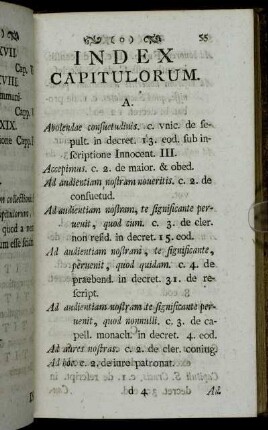 XVII.
Cap.
XVIII.
Cap. I
XIX.
Cap.
(o) 35
INDEX
CAPITULORUM.
A.
Abolendae consuetudinis. c. vnic. de se-
pult. in decret. 13. eod. sub in-
scriptione Innocent. III.
Accepimus. c. 2. de maior. & obed.
Ad audientiam nostram noueritis. c. 2. de
consuetud.
Ad audientiam nostram, te significante per-
uenit, quod cum. c. 3. de cler.
non resid. in decret. 15. eod.
Ad audientiam nostram, te significante,
peruenit, quod quidam. c. 4. de
praebend. in decret. 31. de re-
script.
Ad audientiam nostram te significante per-
uenit, quod nonnulli. c. 3. de ca-
pell. monach. in decret. 4. eod.
Ad aures nostras. c. 2. de cler. coniug.
Ad hoc. c. 2. de iure patronat.
Ad